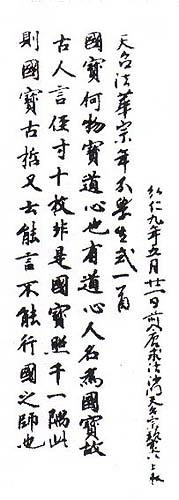 天台法華宗年分学生式一首
國寶何物寶道心也有道心人名為國寶故
古人言徑寸十枚非是國寶照千一隅此
則國寶古哲又云能言不能行國之師也
弘仁九年五月廿一日前入唐求法沙門最澄上